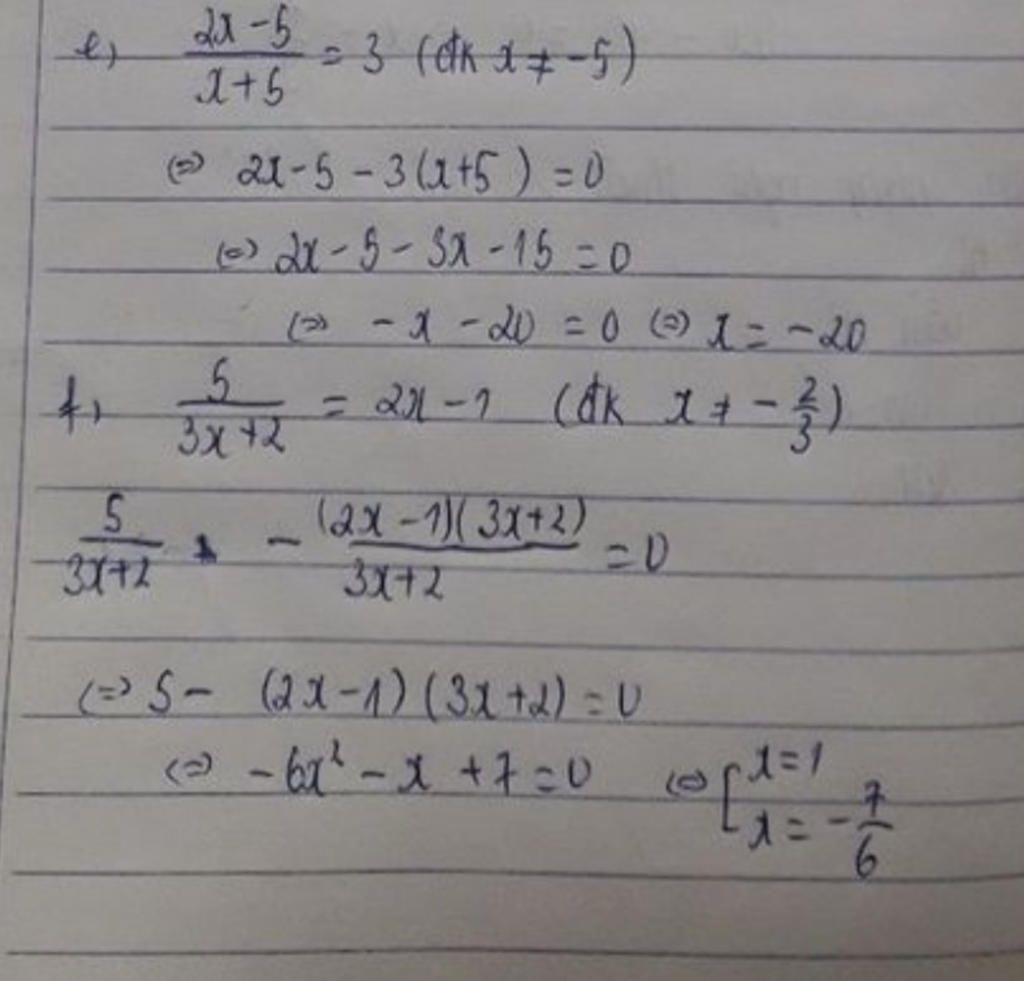 e, \frac{2x-5}{x+5} = 3 (đk x ≠ -5)
(=) 2x-5 - 3(x+5) = 0
(=) 2x - 5 - 3x - 15 = 0
(=) -x - 20 = 0 (=) x = -20
f, \frac{5}{3x+2} = 2x-1 (đk x ≠ -\frac{2}{3})
\frac{5}{3x+2} - \frac{(2x-1)(3x+2)}{3x+2} = 0
(=) 5 - (2x-1)(3x+2) = 0
(=) -6x² - x + 7 = 0 (=) [ x = 1
x = -\frac{7}{6}